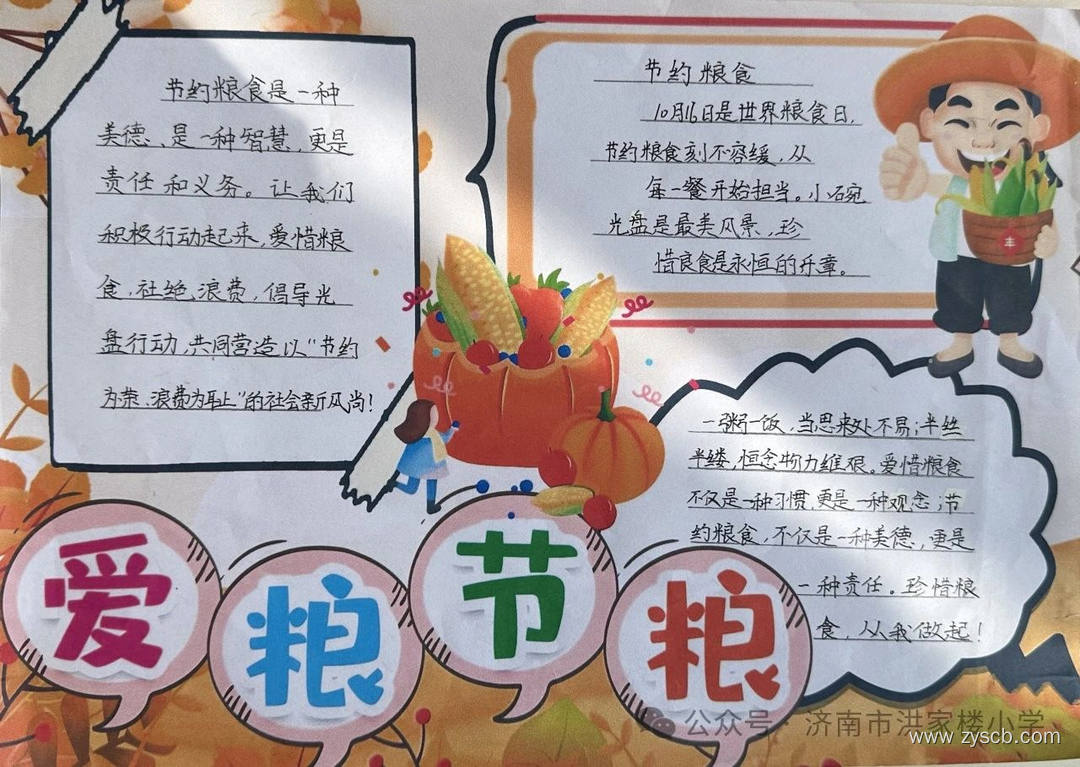 节约粮食是一种
美德、是一种智慧,更是
责任和义务。让我们
积极行动起来,爱惜粮
食,社绝浪费,倡导光
盘行动,共同营造以“节约
为荣、浪费为耻”的社会新风尚!
节约粮食
10月16日是世界粮食日,
节约粮食刻不容缓,从
每一餐开始担当。小碗
光盘是最美风景,珍
惜良食是永恒的开章。
丰
一粥一饭,当思来处不易;半丝
半缕,恒念物力维艰。爱惜粮食
不仅是一种习惯,更是一种观念;节
约粮食,不仅是一种美德,更是
一种责任。珍惜粮
食,从我做起!
爱粮节粮
公众号·济南市洪家楼小学
www.zyscb.com